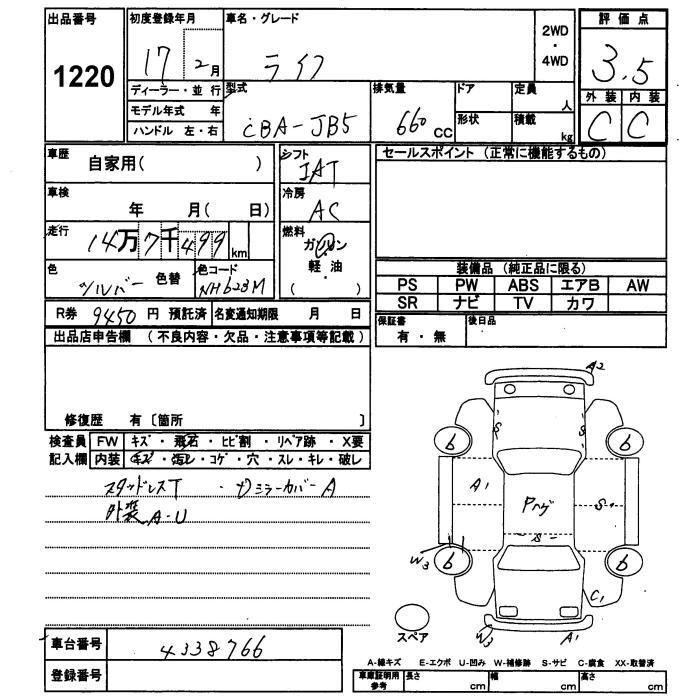 出品番号
1220
初度登録年月
17 2月
車名・グレード
ライフ
2WD
・
4WD
評価点
3.5
外装 内装
C C
ディーラー・並行
モデル年式 年
ハンドル 左・右
型式
CBA-JB5
排気量
660 CC
ドア
形状
定員
人
積載
kg
車歴
自家用( )
シフト
IAT
セールスポイント (正常に機能するもの)
車検
年 月( 日)
冷房
AC
走行
14万7千499 km
燃料
ガソリン
・
軽油
( )
色
シルバー 色替
色コード
NH623M
装備品 (純正品に限る)
PS PW ABS エアB AW
SR ナビ TV カワ
R券 9450 円 預託済 名変通知期限 月 日
保証書
有・無
後日品
出品店申告欄 (不良内容・欠品・注意事項等記載)
修復歴 有〔箇所 〕
検査員 FW キズ・飛石・ヒビ割・リペア跡・X要
記入欄 内装 キズ・汚レ・コゲ・穴・スレ・キレ・破レ
スタッドレスT ・ミラーカバーA
外装A-U
A2
S S
6 6
A1 Pハゲ S
S
W3 6 6
C1
W3 A1
スペア
車台番号 4338766
登録番号
A-線キズ E-エクボ U-凹み W-補修跡 S-サビ C-腐食 XX-取替済
車庫証明用
参考
長さ cm 幅 cm 高さ cm